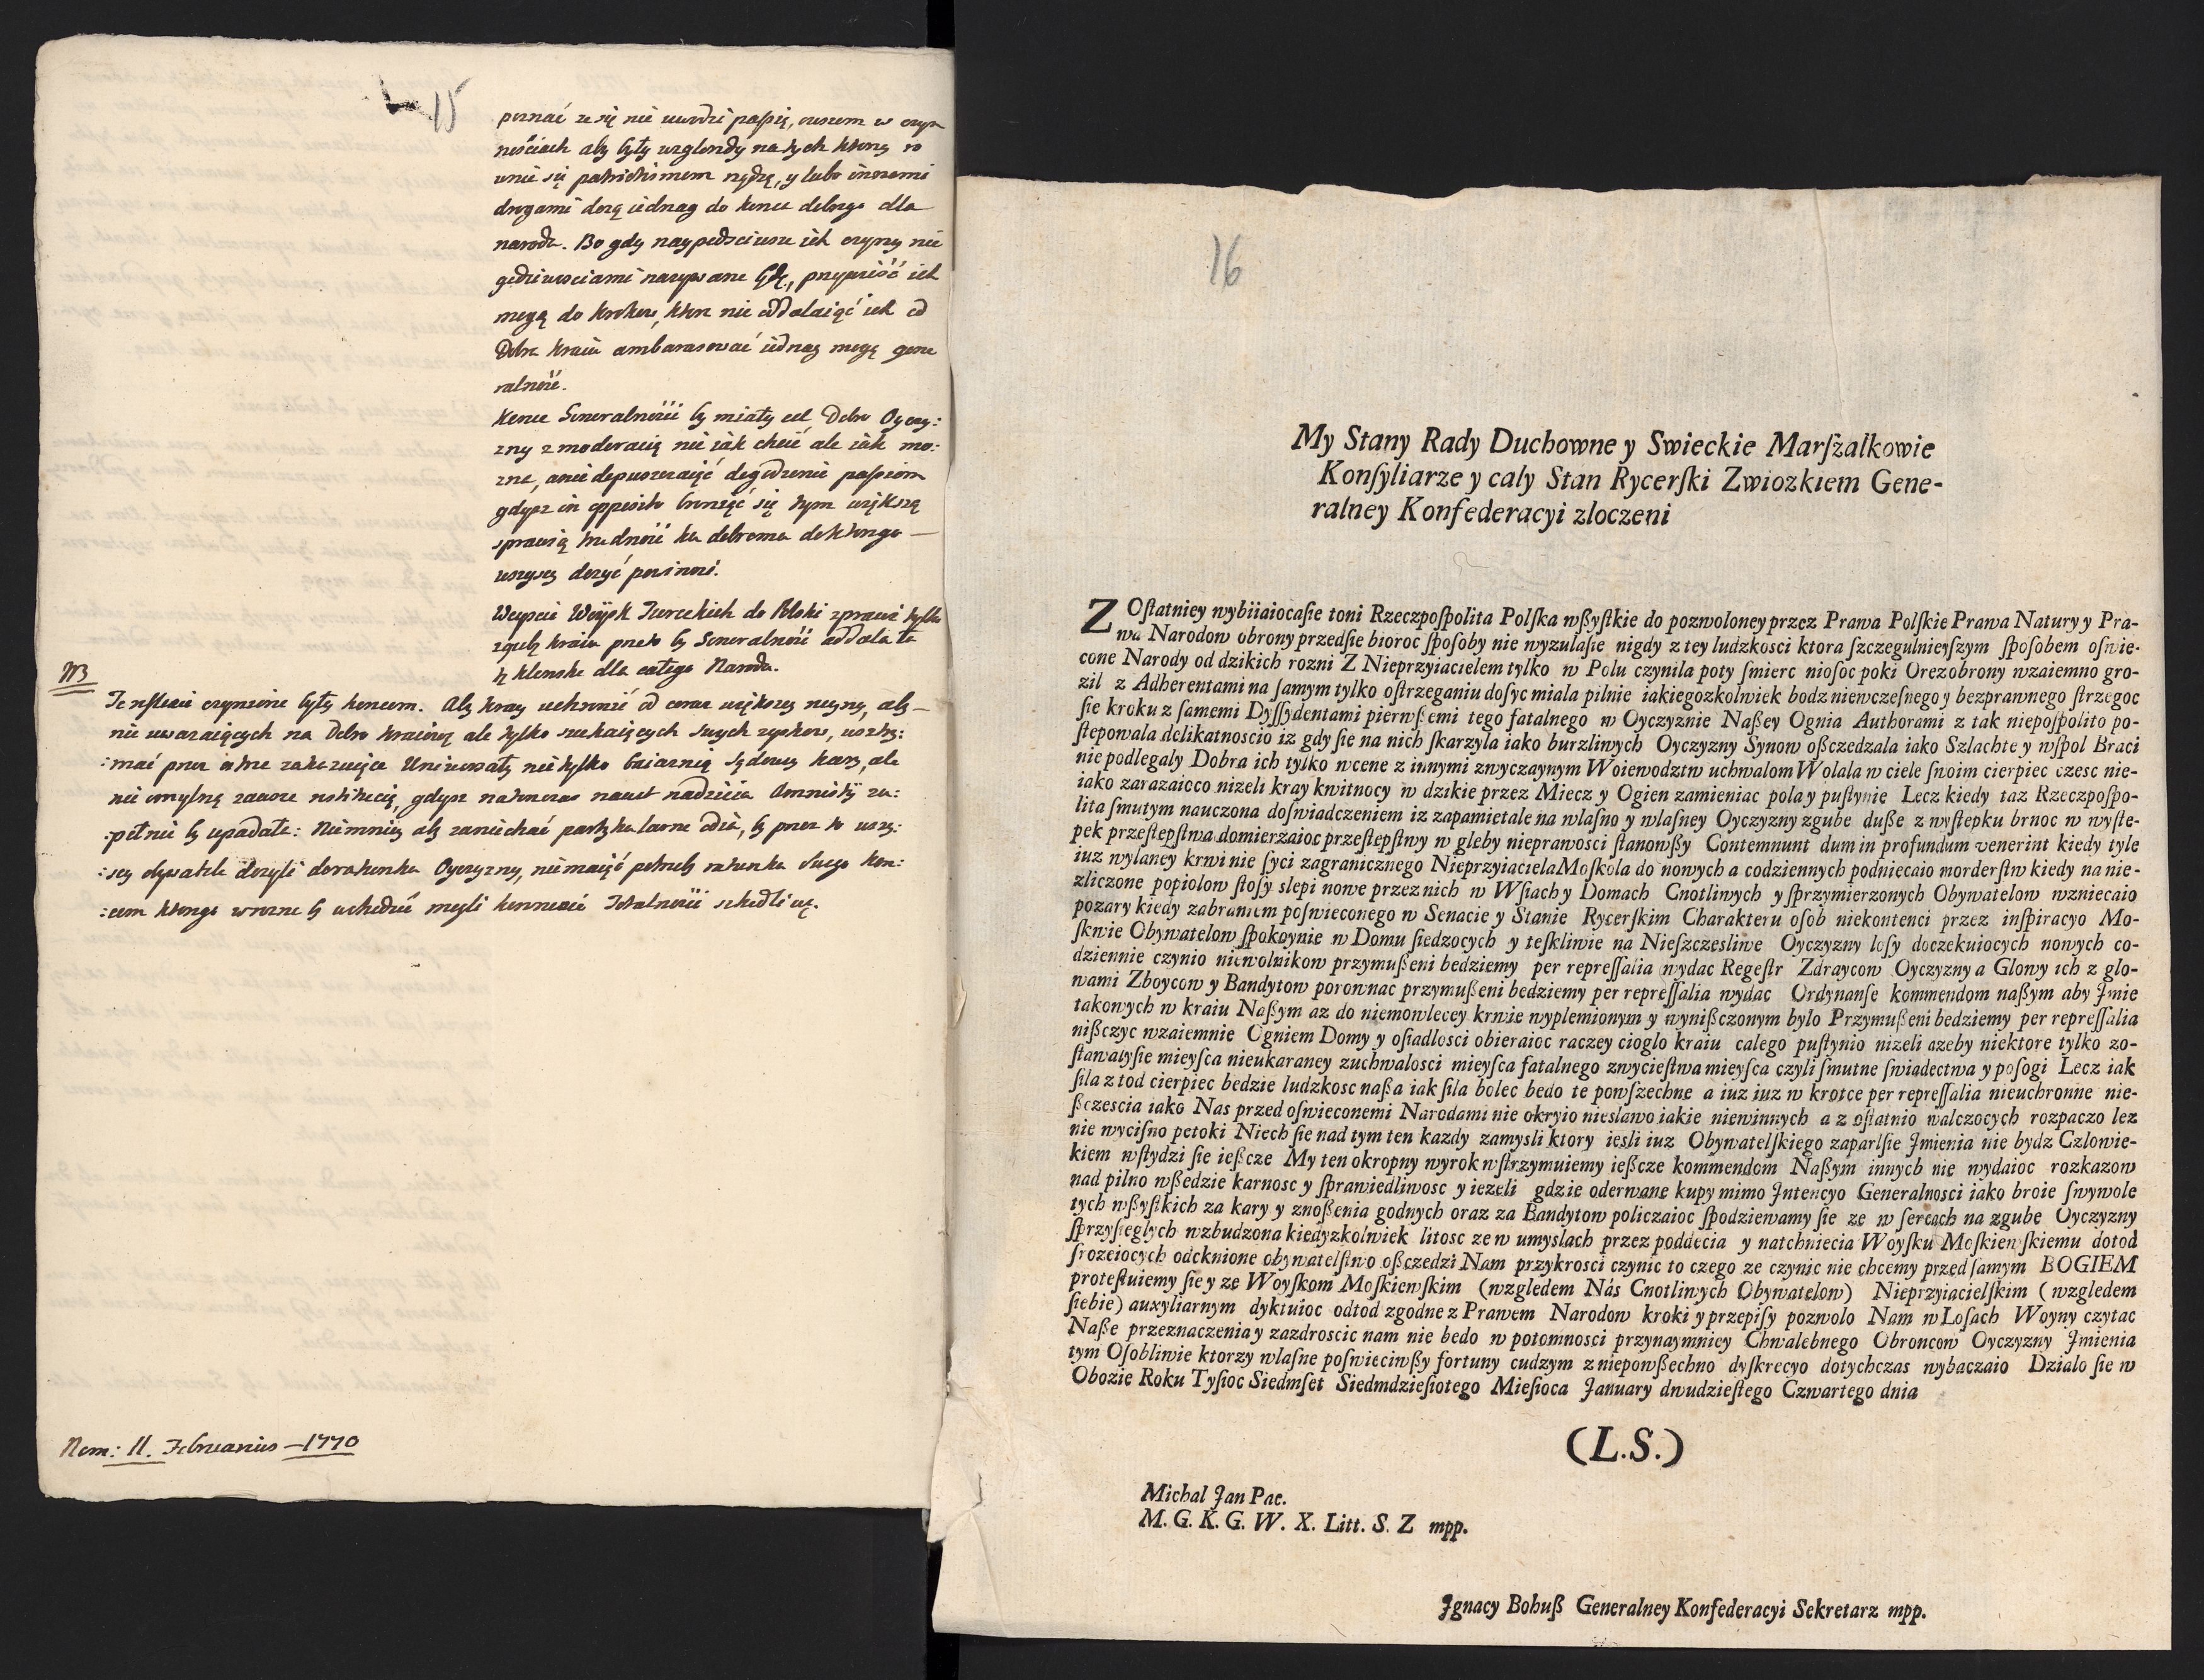 15
poznać ze się nie uwodzi passią, owszem w czyn
nościach aby były wzglendy na tych ktorzy ro
wnie się patriotismem rządzą, y lubo innemi
drogami dążą iednag do konca dobrego dla
narodu. Bo gdy naypodsciwsze ich czyny nie
godziwosciami nazywane będą, przywiść ich
mogą do krokow, ktore nie oddalaiąć ich od
Dobra kraiu ambarasować iednag mogą gene
ralność.
Konce Generalności by miały cel Dobro Oyczy:
zny z moderacią nie iak chcić ale iak mo:
zna, a nie dopuszczaiąć dogodzenie passiom
gdysz in opposito broniąć się tym większą
sprawią trudność ku dobremu do ktorego
wszyscy dążyć powinni.
Weyscie Woysk Tureckich do Polski sprawi tylko
zgubę kraiu przeto by Generalność oddalała
tę klenske dla całego Narodu.
NB
Te reflexie czynione były koncem. Aby kray uchronić od coraz większey ruyny, aby
nie uwazaiących na Dobro kraiowe ale tylko szukaiących swych zyskow, wstrzy:
:mać przez ostre zakazuiące Uniwersały nie tylko boiaznią sądowey kary, ale
nie omylną zawsze restitucią, gdysz natenczas nawet nadzieia Amnistÿ zu:
:pełnie by upadała: Niemniey aby zaniechać partykularne odia, by przez to wszy:
:scy obywatele dązyli do ratunku Oyczyzny, nie maiąć potrzeby ratunku swego hon:
:orem ktorego wrazne by uchodzić mogli konnexie Totalności szkodliwe.
Nom: 11. Februarius—1770
16
My Stany Rady Duchowne y Swieckie Marſzalkowie
Konſyliarze y caly Stan Rycerſki Zwiozkiem Gene-
ralney Konfederacyi zloczeni
Z Oſtatniey wybiiaiocaſie toni Rzeczpoſpolita Polſka wßyſtkie do pozwoloney przez Prawa Polſkie Prawa Natury y Pra-
wa Narodow obrony przedſie bioroc ſpoſoby nie wyzulaſie nigdy z tey ludzkosci ktora ſzczegulnieyſzym ſpoſobem oſwie-
cone Narody od dzikich rozni Z Nieprzyiacielem tylko w Polu czynila poty ſmierc nioſoc poki Orezobrony wzaiemno gro-
zil z Adherentami na ſamym tylko oſtrzeganiu doſyc miala pilnie iakiegozkolwiek bodz niewczeſnego y bezprawnego ſtrzegoc
ſie kroku z ſamemi Dyſſydentami pierwßemi tego fatalnego w Oyczyznie Naßey Ognia Authorami z tak niepoſpolito po-
ſtepowala delikatnoscio iz gdy ſie na nich ſkarzyla iako burzliwych Oyczyzny Synow oßczedzala iako Szlachte y wſpol Braci
nie podlegaly Dobra ich tylko wcene z innymi zwyczaynym Woiewodztw uchwalom Wolala w ciele ſwoim cierpiec czesc nie-
iako zarazaioco nizeli kray kwitnocy w dzikie przez Miecz y Ogien zamieniac pola y puſtynie Lecz kiedy taz Rzeczpoſpo-
lita ſmutym nauczona doſwiadczeniem iz zapamietale na wlaſno y wlaſney Oyczyzny zgube duße z wyſtepku brnoc w wyſte-
pek przeſtepſtwa domierzaioc przeſtepſtwy w gleby nieprawosci ſtanowßy Contemnunt dum in profundum venerint kiedy tyle
iuz wylaney krwi nie ſyci zagranicznego Nieprzyiaciela Moſkola do nowych a codziennych podniecaio morderſtw kiedy na nie-
zliczone popiolow ſtoſy slepi nowe przez nich w Wſiach y Domach Cnotliwych y ſprzymierzonych Obywatelow wzniecaio
pozary kiedy zabraniem poſwieconego w Senacie y Stanie Rycerſkim Charakteru oſob niekontenci przez inſpiracyo Mo-
ſkwie Obywatelow ſpokoynie w Domu ſiedzocych y teſkliwie na Nieſzczesliwe Oyczyzny loſy doczekuiocych nowych co-
dziennie czynio niewolnikow przymußeni bedziemy per repreſſalia wydac Regeſtr Zdraycow Oyczyzny a Glowy ich z glo-
wami Zboycow y Bandytow porownac przymußeni bedziemy per repreſſalia wydac Ordynanſe kommendom naßym aby Jmie
takowych w kraiu Naßym az do niemowlecey krwie wyplemionym y wynißczonym bylo Przymußeni bedziemy per repreſſalia
nißczyc wzaiemnie Ogniem Domy y oſiadlosci obieraioc raczey cioglo kraiu calego puſtynio nizeli azeby niektore tylko zo-
ſtawalyſie mieyſca nieukaraney zuchwalosci mieyſca fatalnego zwycieſtwa mieyſca czyli ſmutne ſwiadectwa y poſogi Lecz iak
ſila z tod cierpiec bedzie ludzkosc naßa iak ſila bolec bedo te powſzechne a iuz iuz w krotce per repreſſalia nieuchronne nie-
ßczescia iako Nas przed oſwieconemi Narodami nie okryio nieslawo iakie niewinnych a z oſtatnio walczocych rozpaczo lez
nie wyciſno potoki Niech ſie nad tym ten kazdy zamysli ktory iesli iuz Obywatelſkiego zaparlſie Jmienia nie bydz Czlowie-
kiem wſtydzi ſie ießcze My ten okropny wyrok wſtrzymuiemy ießcze kommendom Naßym innych nie wydaioc rozkazow
nad pilno wßedzie karnosc y ſprawiedliwosc y iezeli gdzie oderwane kupy mimo Jntencyo Generalnosci iako broie ſwywole
tych wßyſtkich za kary y znoßenia godnych oraz za Bandytow policzaioc ſpodziewamy ſie ze w ſercach na zgube Oyczyzny
ſprzyſieglych wzbudzona kiedyzkolwiek litosc ze w umyslach przez poddecia y natchniecia Woyſku Moſkiewſkiemu dotod
ſrozeiocych odcknione obywatelſtwo oßczedzi Nam przykrosci czynic to czego ze czynic nie chcemy przed ſamym BOGIEM
proteſtuiemy ſie y ze Woyſkom Moſkiewſkim (wzgledem Nás Cnotliwych Obywatelow) Nieprzyiacielſkim (wzgledem
ſiebie) auxyliarnym dyktuioc odtod zgodne z Prawem Narodow kroki y przepiſy pozwolo Nam w Loſach Woyny czytac
Naße przeznaczenia y zazdroscic nam nie bedo w potomnosci przynaymniey Chwalebnego Obroncow Oyczyzny Jmienia
tym Oſobliwie ktorzy wlaſne poſwieciwßy fortuny cudzym z niepowßechno dyſkrecyo dotychczas wybaczaio Dzialo ſie w
Obozie Roku Tyſioc Siedmſet Siedmdzieſiotego Mieſioca January dwudzieſtego Czwartego dnia
(L.S.)
Michal Jan Pac.
M. G. K. G. W. X. Litt. S. Z mpp.
Jgnacy Bohuß Generalney Konfederacyi Sekretarz mpp.